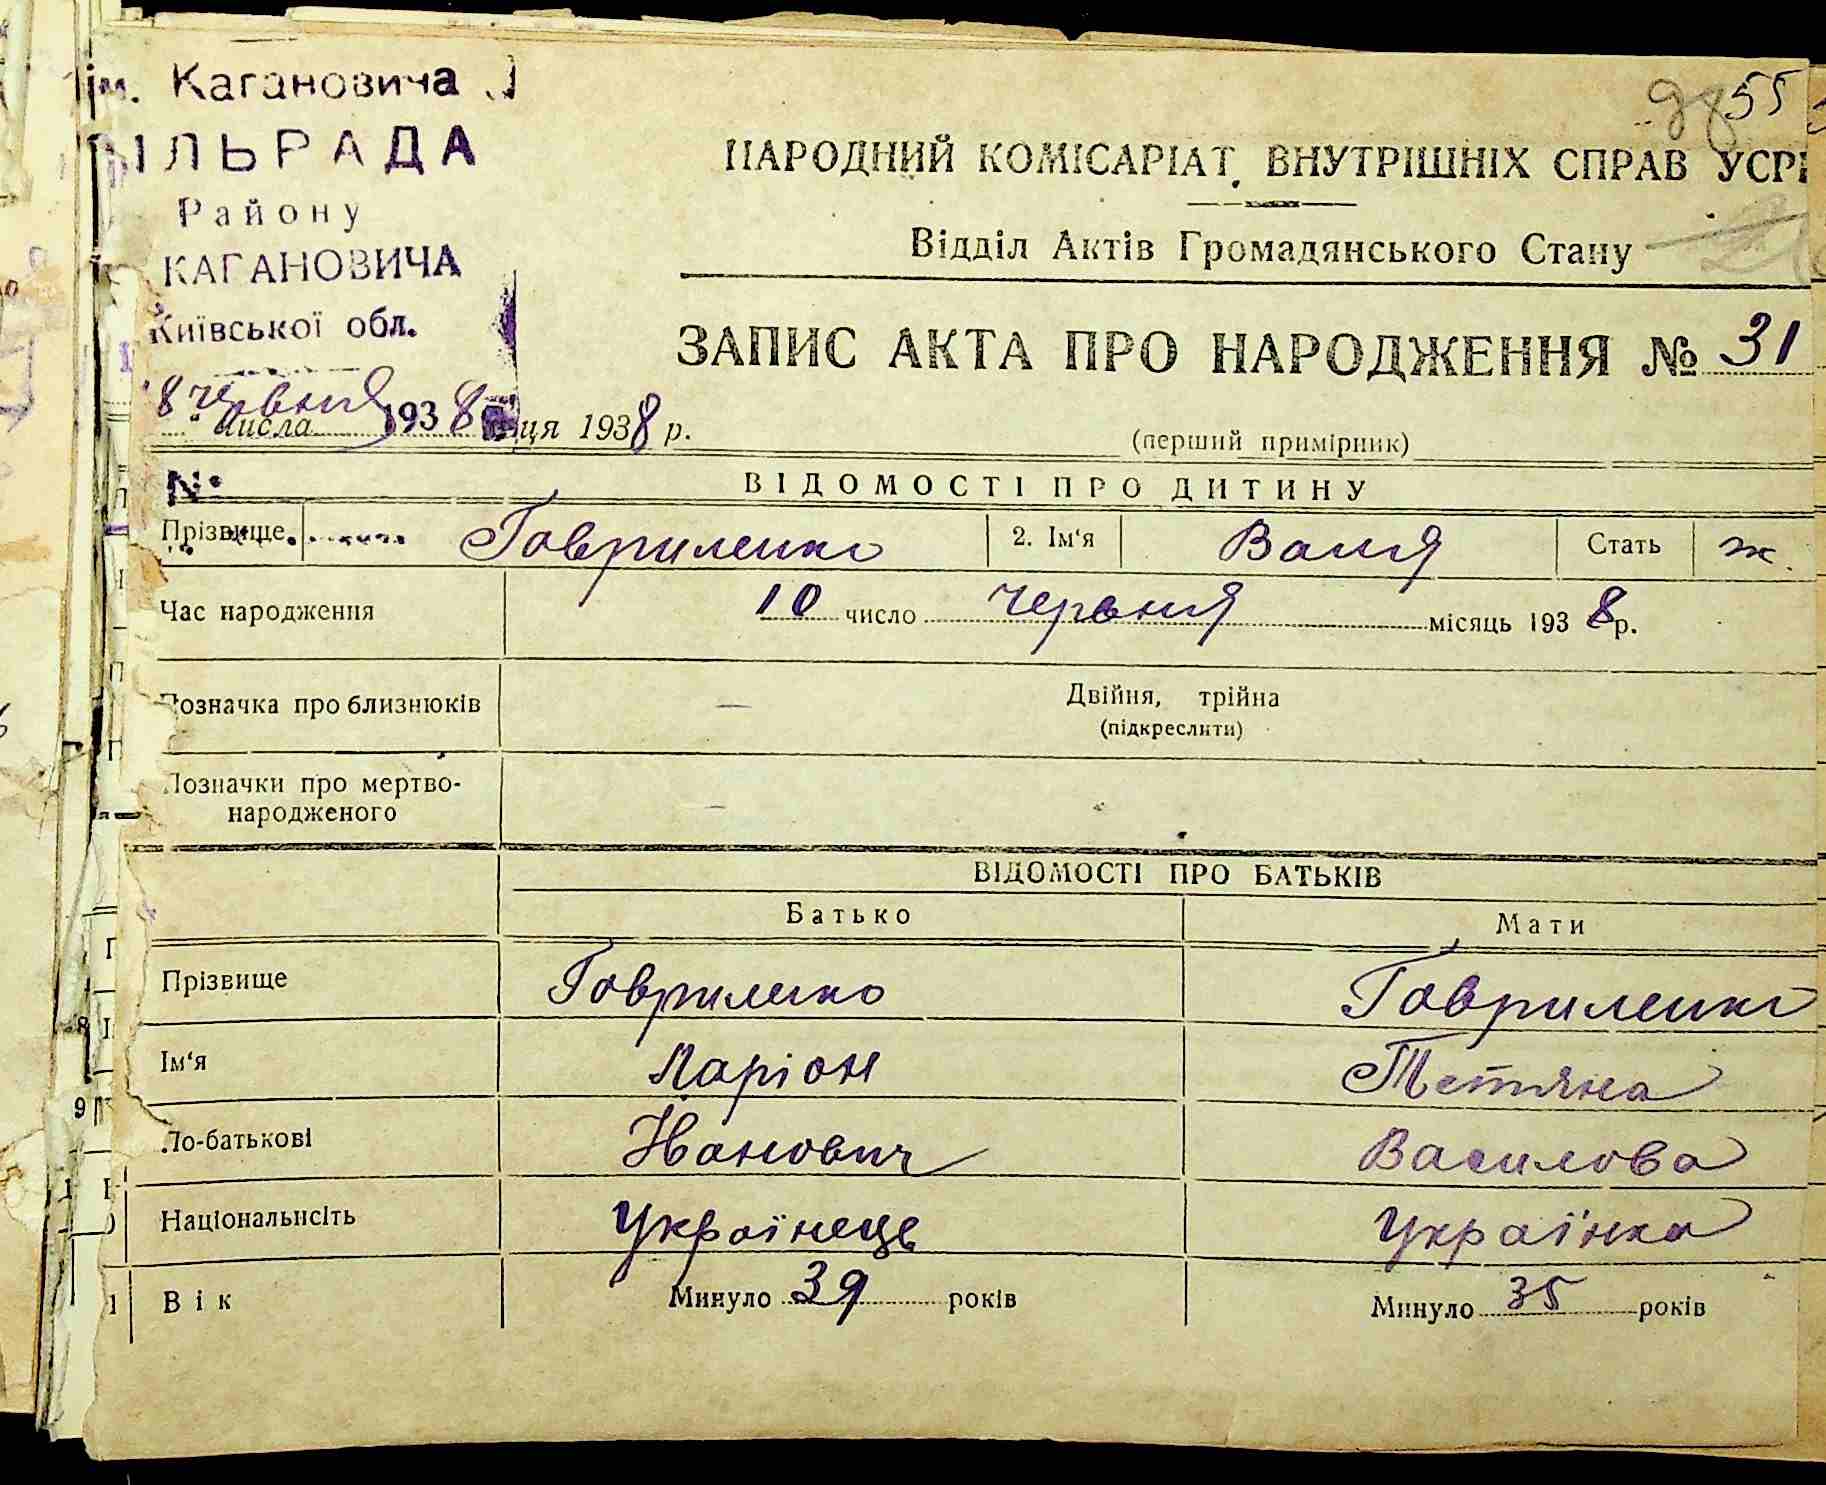 ім. Кагановича
СІЛЬРАДА
Району
КАГАНОВИЧА
Київської обл.
55
НАРОДНИЙ КОМІСАРІАТ ВНУТРІШНІХ СПРАВ УСРР
Відділ Актів Громадянського Стану
ЗАПИС АКТА ПРО НАРОДЖЕННЯ № 31
8 червня 1938
числа ця 1938 р.
(перший примірник)
№
ВІДОМОСТІ ПРО ДИТИНУ
Прізвище Говриленко 2. Ім'я Валя Стать ж.
Час народження 10 число червня місяць 1938 р.
Позначка про близнюків — Двійня, трійна
(підкреслити)
Позначки про мертво-
народженого —
ВІДОМОСТІ ПРО БАТЬКІВ
Батько Мати
Прізвище Говриленко Говриленко
Ім'я Ларіон Тетяна
По-батькові Іванович Василова
Національнсіть Українець Українка
Вік Минуло 39 років Минуло 35 років